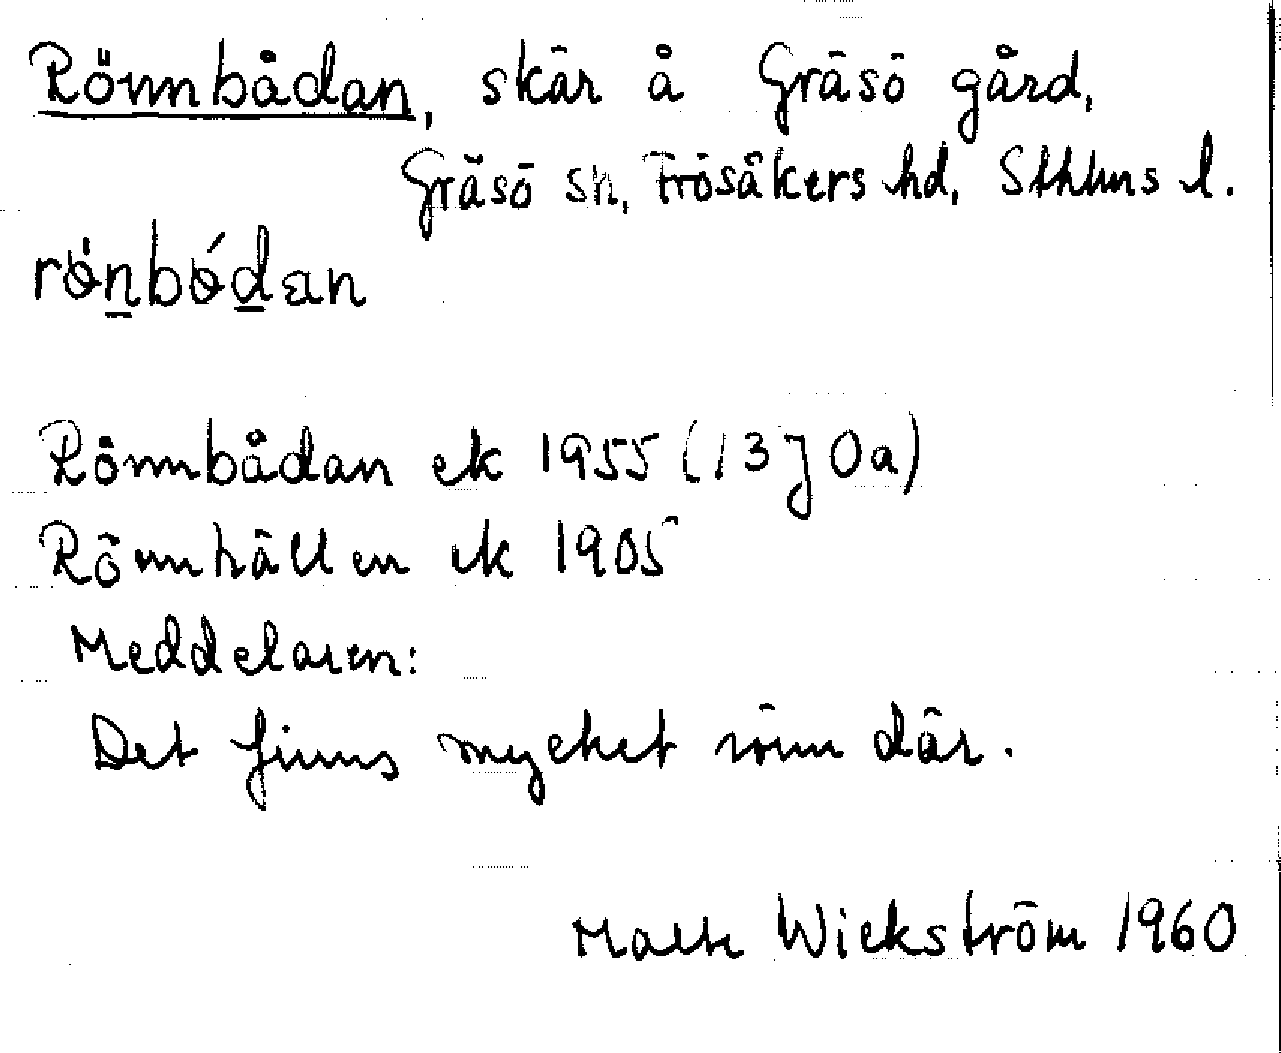 Rönnbådan, skär å Gräsö gård,
Gräsö sn, Frösåkers hd, Sthlms l.
rö̀nbódan
Rönnbådan ek 1955 (13 J 0a)
Rönnhällen ek 1905
Meddelaren:
Det finns mycket rönn där.
Malte Wickström 1960